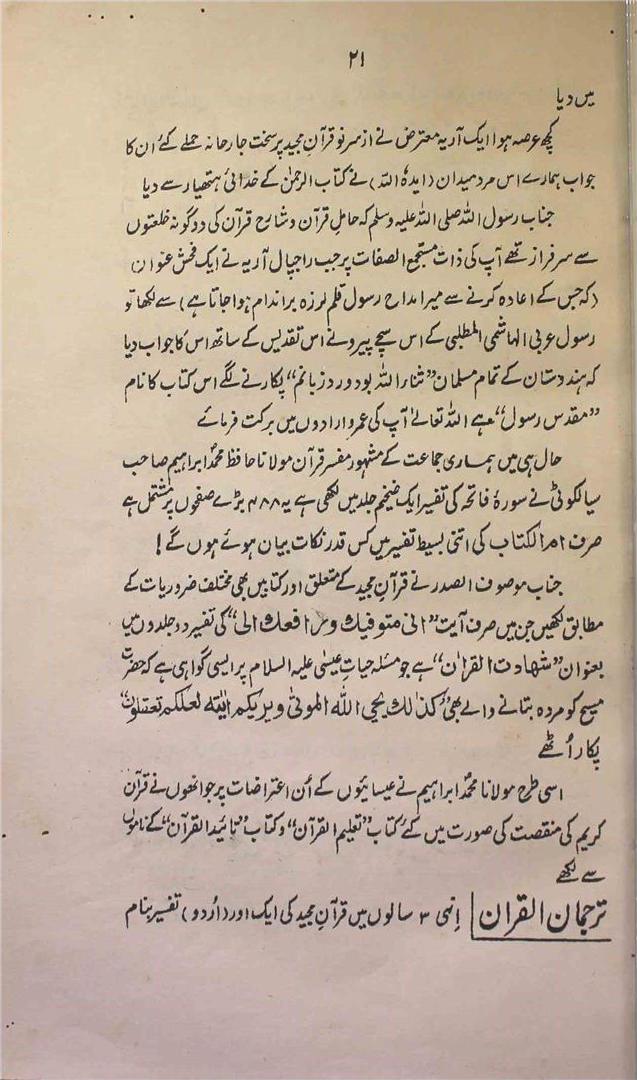 ۲۱
میں دیا
کچھ عرصہ ہوا ایک آریہ معترض نے ازسرنو قرآن مجید پر سخت جارحانہ حملے کئے ان کا
جواب ہمارے اس مرد میدان (ایدہ اللہ) نے کتاب الرحمٰن کے خدائی ہتھیار سے دیا
جناب رسول اللہ صلی اللہ علیہ وسلم کہ حامل قرآن و شارح قرآن کی دوگونہ خلعتوں
سے سرفراز تھے آپ کی ذات مستجمع الصفات پر جب راجپال آریہ نے ایک فحش عنوان
(کہ جس کے اعادہ کرنے سے میرا مداح رسول قلم لرزہ براندام ہوا جاتا ہے) سے لکھا تو
رسول عربی الہاشمی المطلبی کے اس سچے پیرو نے اس تقدیس کے ساتھ اس کا جواب دیا
کہ ہندستان کے تمام مسلمان ”ثناء اللہ بود ورد زبانم“ پکارنے لگے اس کتاب کا نام
”مقدس رسول“ ہے اللہ تعالیٰ آپ کی عمر و ارادوں میں برکت فرمائے
حال ہی میں ہماری جماعت کے مشہور مفسر قرآن مولانا حافظ محمد ابراہیم صاحب
سیالکوٹی نے سورۂ فاتحہ کی تفسیر ایک ضخیم جلد میں لکھی ہے یہ ۴۸۸ بڑے صفحوں پر مشتمل ہے
صرف ام الکتاب کی اتنی بسیط تفسیر میں کس قدر نکات بیان ہوئے ہوں گے!
جناب موصوف الصدر نے قرآن مجید کے متعلق اور کتابیں بھی مختلف ضروریات کے
مطابق لکھیں جن میں صرف آیت ”انی متوفیك ورافعك الی“ کی تفسیر دو جلدوں میں
بعنوان ”شهادت القرآن“ ہے جو مسئلہ حیات عیسیٰ علیہ السلام پر ایسی گواہی ہے کہ حضرت
مسیح کو مردہ بتانے والے بھی ”كذلك يحي الله الموتى ويريكم ايته لعلكم تعقلون“
پکار اُٹھے
اسی طرح مولانا محمد ابراہیم نے عیسائیوں کے اُن اعتراضات پر جو انھوں نے قرآن
کریم کی منقصت کی صورت میں کئے کتاب ”تعلیم القرآن“ و کتاب ”تائید القرآن“ کے ناموں
سے لکھے
ترجمان القرآن انہی ۳ سالوں میں قرآن مجید کی ایک اور (اُردو) تفسیر بنام